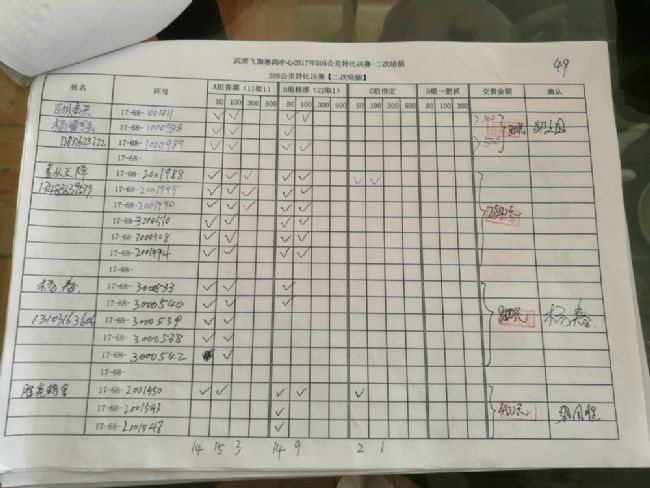 武清飞翔赛鸽中心2017年506公里特比决赛-二次暗插
49
506公里特比决赛【二次暗插】
姓名 环号 A组普源（11取1） B组精源（22取1） C组指定 D组一把抓 交费金额 确认
50 100 300 500 50 100 300 500 50 100 300 500 50 100 300
17-68-1001011
17-68-1000988
17-68-1000989
17-68-
喜从天降 17-68-2001988
17-68-2001995
17-68-2001990
17-68-3000510
17-68-3000508
17-68-2001994
17-68-
杨春 17-68-3000533
17-68-3000540
13103163606 17-68-3000539 杨春
17-68-3000538
17-68-3000542
17-68-
17-68-2001550
17-68-2001543 450元
17-68-2001548
14 15 3 14 9 2 1